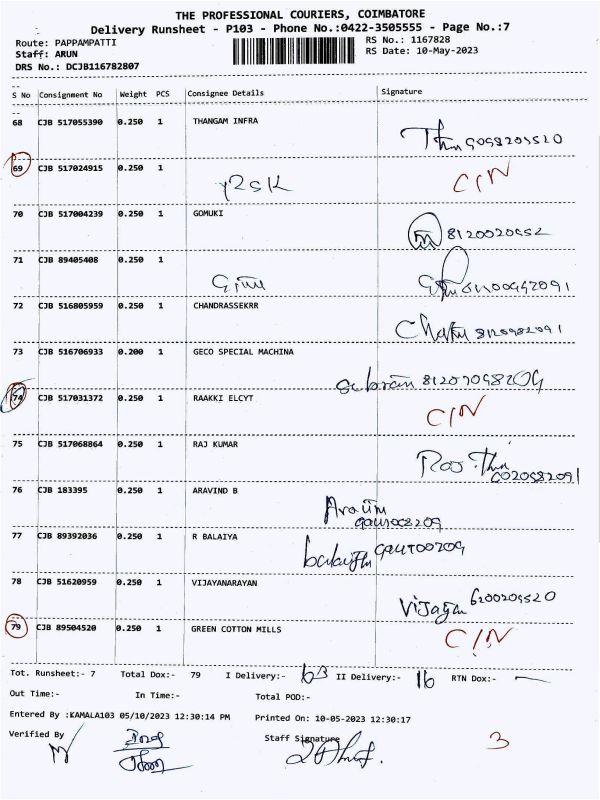 THE PROFESSIONAL COURIERS, COIMBATORE
Delivery Runsheet - P103 - Phone No.:0422-3505555 - Page No.:7
Route: PAPPAMPATTI
RS No.: 1167828
Staff: ARUN
RS Date: 10-May-2023
DRS No.: DCJB116782807
S No Consignment No Weight PCS Consignee Details Signature
68 CJB 517055390 0.250 1 THANGAM INFRA
69 CJB 517024915 0.250 1 CIN
70 CJB 517004239 0.250 1 GOMUKI
71 CJB 89405408 0.250 1
72 CJB 516805959 0.250 1 CHANDRASSEKRR
73 CJB 516706933 0.200 1 GECO SPECIAL MACHINA
74 CJB 517031372 0.250 1 RAAKKI ELCYT CIN
75 CJB 517068864 0.250 1 RAJ KUMAR
76 CJB 183395 0.250 1 ARAVIND B
77 CJB 89392036 0.250 1 R BALAIYA
78 CJB 51620959 0.250 1 VIJAYANARAYAN
79 CJB 89504520 0.250 1 GREEN COTTON MILLS CIN
Tot. Runsheet:- 7 Total Dox:- 79 I Delivery:- 63 II Delivery:- 16 RTN Dox:-
Out Time:- In Time:- Total POD:-
Entered By :KAMALA103 05/10/2023 12:30:14 PM Printed On: 10-05-2023 12:30:17
Verified By Staff Signature 3